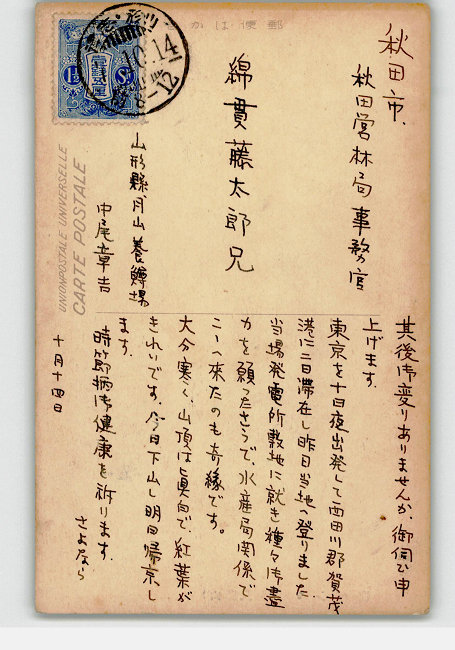 郵便はかき
秋田市、
秋田営林局事務官
綿貫藤太郎兄
山形縣月山養鱒場
中尾章吉
10.14
8-12
1½ Sn
UNION POSTALE UNIVERSELLE
CARTE POSTALE
其後御変りありませんか、御伺ひ申
上げます。
東京を十日夜出発して西田川郡賀茂
港に二日滞在し昨日当地へ登りました
当場発電所敷地に就き種々御盡
力を願ったさうで、水産局関係で
こゝへ来たのも奇縁です。
大分寒く、山頂は眞白で、紅葉が
きれいです、今日下山し明日帰京し
ます。
時節柄御健康を祈ります.
さよなら
十月十四日